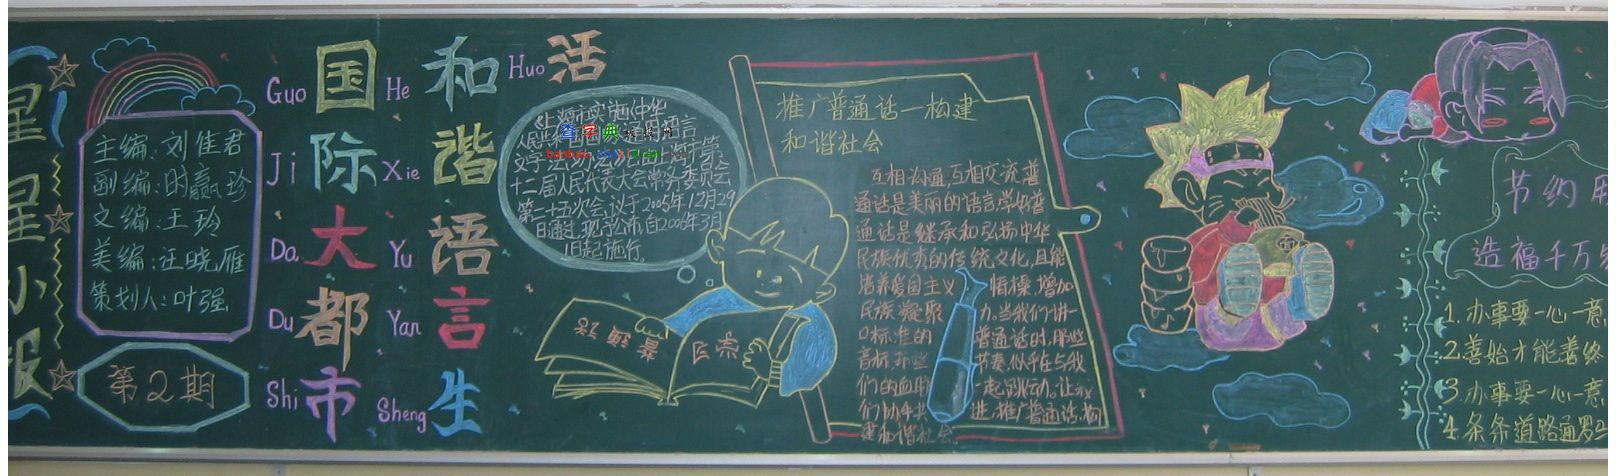 星星小报
主编:刘佳君
副编:田赢珍
文编:王玲
美编:汪晓雁
策划人:叶强
第2期
Guo 国
Ji 际
Da 大
Du 都
Shi 市
He 和
Xie 谐
Yu 语
Yan 言
Sheng 生
Huo 活
《上海市实施《中华
人民共和国国家通用语言
文字法
十二届人民代表大会常务委员会
第二十五次会议于2005年12月29
日通过,现予公布,自2006年3月
1日起施行。
查字典
推广普通话—构建
和谐社会
互相沟通,互相交流,普
通话是美丽的语言学好普
通话是继承和弘扬中华
民族优秀的传统文化,且能
培养爱国主义情操,增加
民族凝聚力.当我们讲一
口标准的普通话时,那些
音标,那些节奏,似乎在与我
们的血脉一起跳动.让我
们协手共进,推广普通话,构
建和谐社会.
节约用
造福千万
1.办事要一心一意
2.善始才能善终
3.办事要一心一意
4.条条道路通罗马